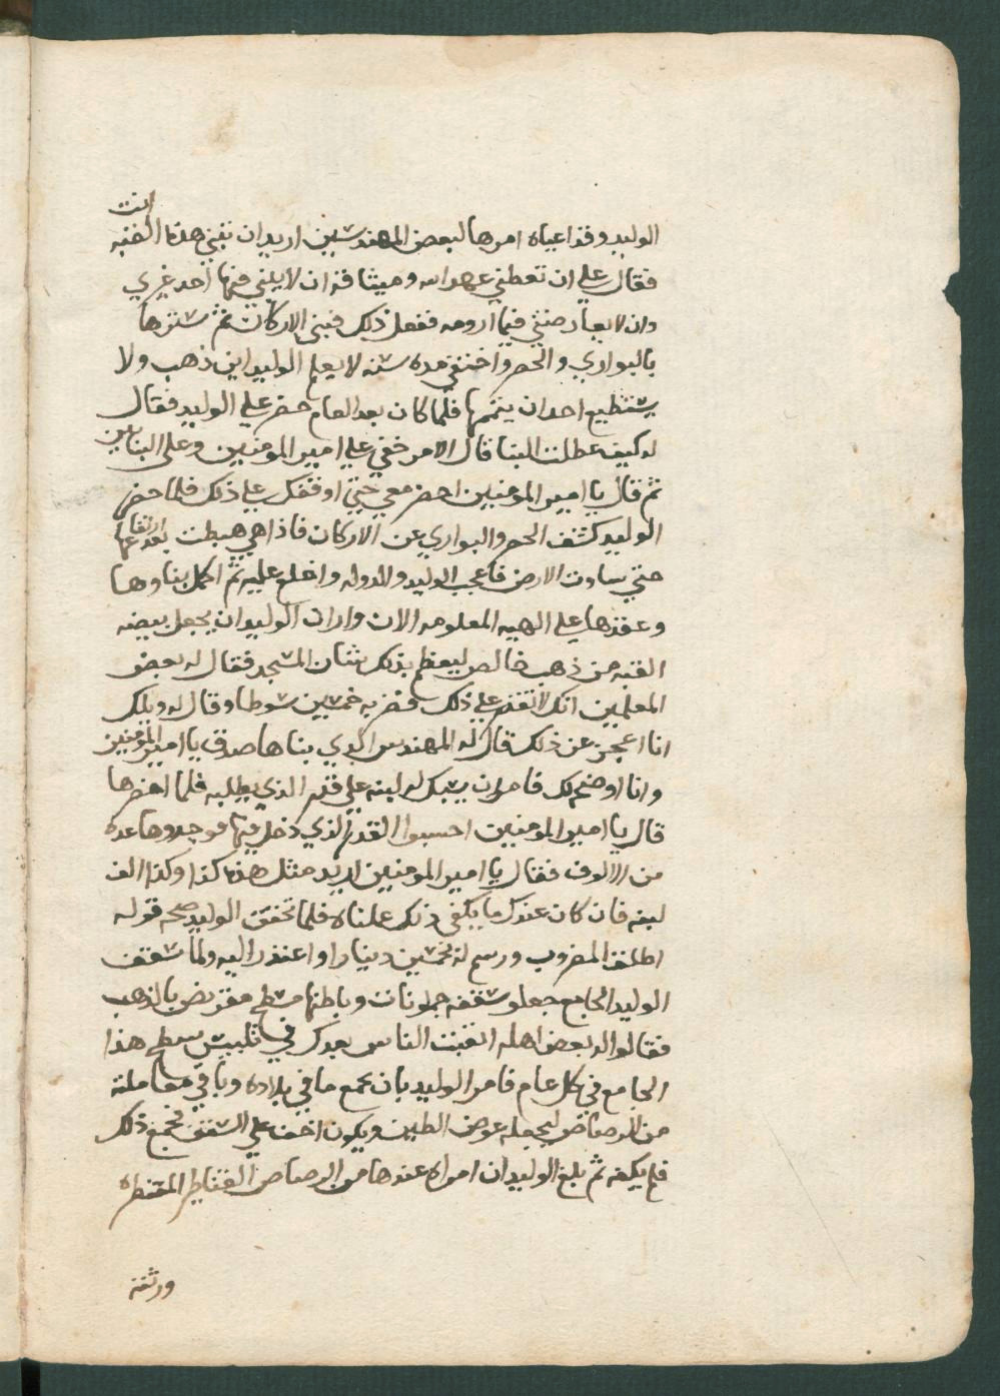 انت
الوليد وقد اعياه امرها لبعض المهندسين اريد ان تبني هذه القبه
فقال علي ان تعطني عهد الله وميثاقه ان لا يبني فيها احد غيري
وان لا يعارضني فيما ارومه ففعل ذلك فبني الاركان ثم سترها
بالبواري والحصر واختفي مده سنه لا يعلم الوليد اين ذهب ولا
يستطيع احد ان يتمها فلما كان بعد العام حضر علي الوليد فقال
له كيف عطلت البنا قال الامر خفي علي امير المومنين وعلي البنايين
ثم قال يا امير المومنين احضر معي حتي اوقفك علي ذلك فلما حضر
الوليد كشف الحصر والبواري عن الاركان فاذا هي هبطت بعد ارتفاعها
حتي ساوت الارض فاعجب الوليد والدوله واخلع عليه ثم اكمل بناوها
وعقدها علي الهيه المعلومه الان وارات الوليد ان يجعل بيضه
القبه من ذهب خالص ليعظم بذلك شان المسجد فقال له بعض
المعلمين انك لا تقدر علي ذلك فضربه خمسين سوطا وقال له ويلك
انا اعجز عن ذلك قال له المهندس الذي بناها صدق يا امير المومنين
وانا اوضح لك فامر ان يسبك له لبنه علي قدر الذي يطلبه فلما احضرها
قال يا امير المومنين احسبوا القدر الذي دخل فيها فوجدوها عده
من الالوف فقال يا امير المومنين اريد مثل هذه كذا وكذا الف
لبنه فان كان عندك ما يكفي ذلك عملناه فلما تحقق الوليد صحه قوله
اطلق المضروب ورسم له بخمسين دينارا واعتذر اليه ولما سقف
الوليد الجامع جعلو سقفه جملونات وباطنها مسطح مقرنص بالذهب
فقالوا له بعض اهله اتعبت الناس بعدك في تلبيس سطح هذا
الجامع في كل عام فامر الوليد بان يجمع ما في بلاده وباقي معاملته
من الرصاص ليجعله عوض الطين ويكون اخف علي السقف فجمع ذلك
فلم يكفه ثم بلغ الوليد ان امراه عندها من الرصاص القناطير المقنطره
ورثته